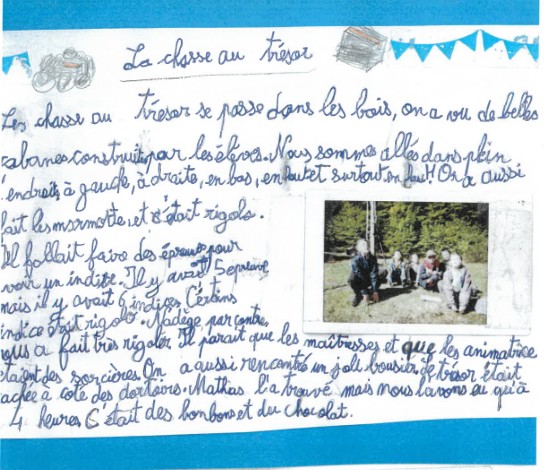 La chasse au trésor
Les chasse au trésor se passe dans les bois, on a vu de belles
cabanes construite par les élèves. Nous sommes allés dans plein
endroits à gauche, à droite, en bas, en haut et surtout en haut! On a aussi
fait les marmotte, et c'était rigolo.
Il fallait faire des épreuve pour
avoir un indice. Il y avait 5 epreuve
mais il y avait 6 indices. Certains
indice était rigolo. Nadège par contre
nous a fait très rigoler. Il parait que les maîtresses et que les animatrice
étaient des sorcières. On a aussi rencontré un joli bousier. Le trésor était
caché a coté des dortoirs. Mathis l'a trouvé mais nous l'avons eu qu'à
4 heures C'était des bonbons et du chocolat.